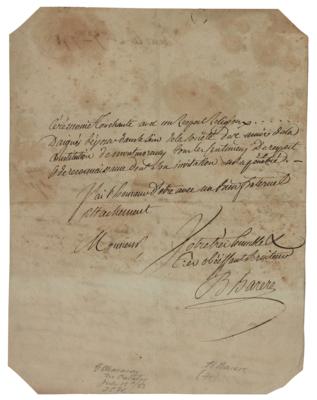 Cérémonie touchante avec un respect religieux......
Daignés déposer dans le sein de la société des amis de la
Constitution de montmorency tous les sentimens de respect
& de reconnaissance dont son invitation m'a pénétré.
J'ai l'honneur d'être avec un bien fraternel
attachement
Monsieur,
Votre très humble &
très obéissant serviteur
B Barere
B Barere